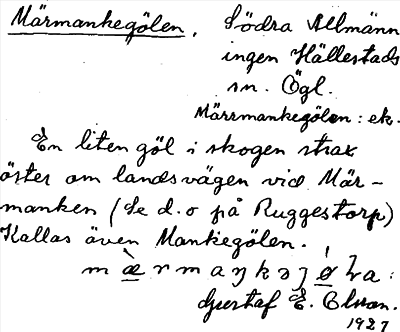 Märmankegölen. Södra Allmänn
ingen Hällestads
sn. Ögl.
Märrmankegölen: ek.
En liten göl i skogen strax
öster om landsvägen vid Mär-
manken (Se d.o på Ruggestorp)
Kallas även Mankegölen.
Gustaf E. Elvan.
1927